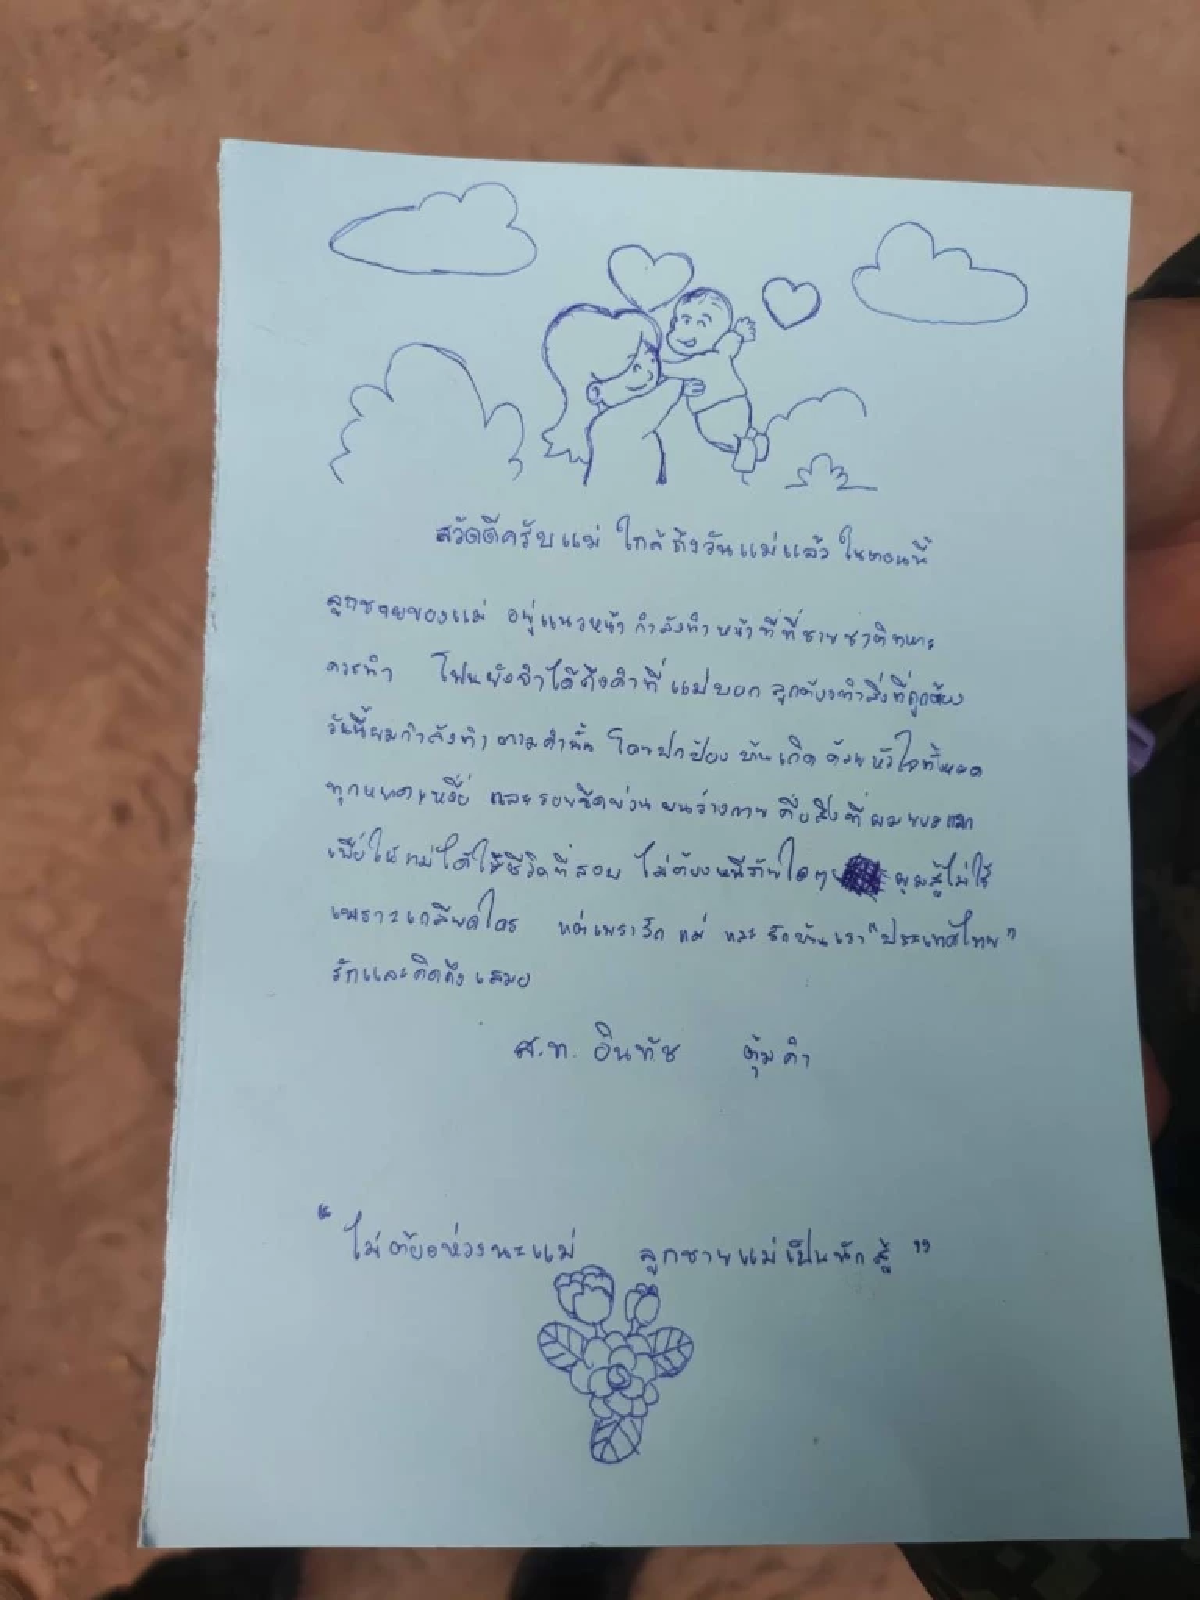 สวัดดีครับแม่ ใกล้ถึงวันแม่แล้ว ในตอนนี้
ลูกชายของแม่ อยู่แนวหน้า กำลังทำหน้าที่ที่ชายชาติทหาร
ควรทำ โฟนยังจำได้ถึงคำที่แม่บอก ลูกต้องทำสิ่งที่ถูกต้อง
วันนี้ผมกำลังทำตามคำนั้น โดยปกป้องบ้านเกิดด้วยหัวใจทั้งหมด
ทุกหยาดเหงื่อ และรอยขีดข่วนบนร่างกาย คือสิ่งที่ผมยอมแลก
เพื่อให้แม่ได้ใช้ชีวิตที่สงบ ไม่ต้องหนีภัยใดๆ ผมสู้ไม่ใช่
เพราะเกลียดใคร แต่เพราะรัก แม่ และรักบ้านเรา "ประเทศไทย"
รักและคิดถึงเสมอ
ส.ท. อินทัช ตุ้มคำ
" ไม่ต้องห่วงนะแม่ ลูกชายแม่เป็นนักสู้ "